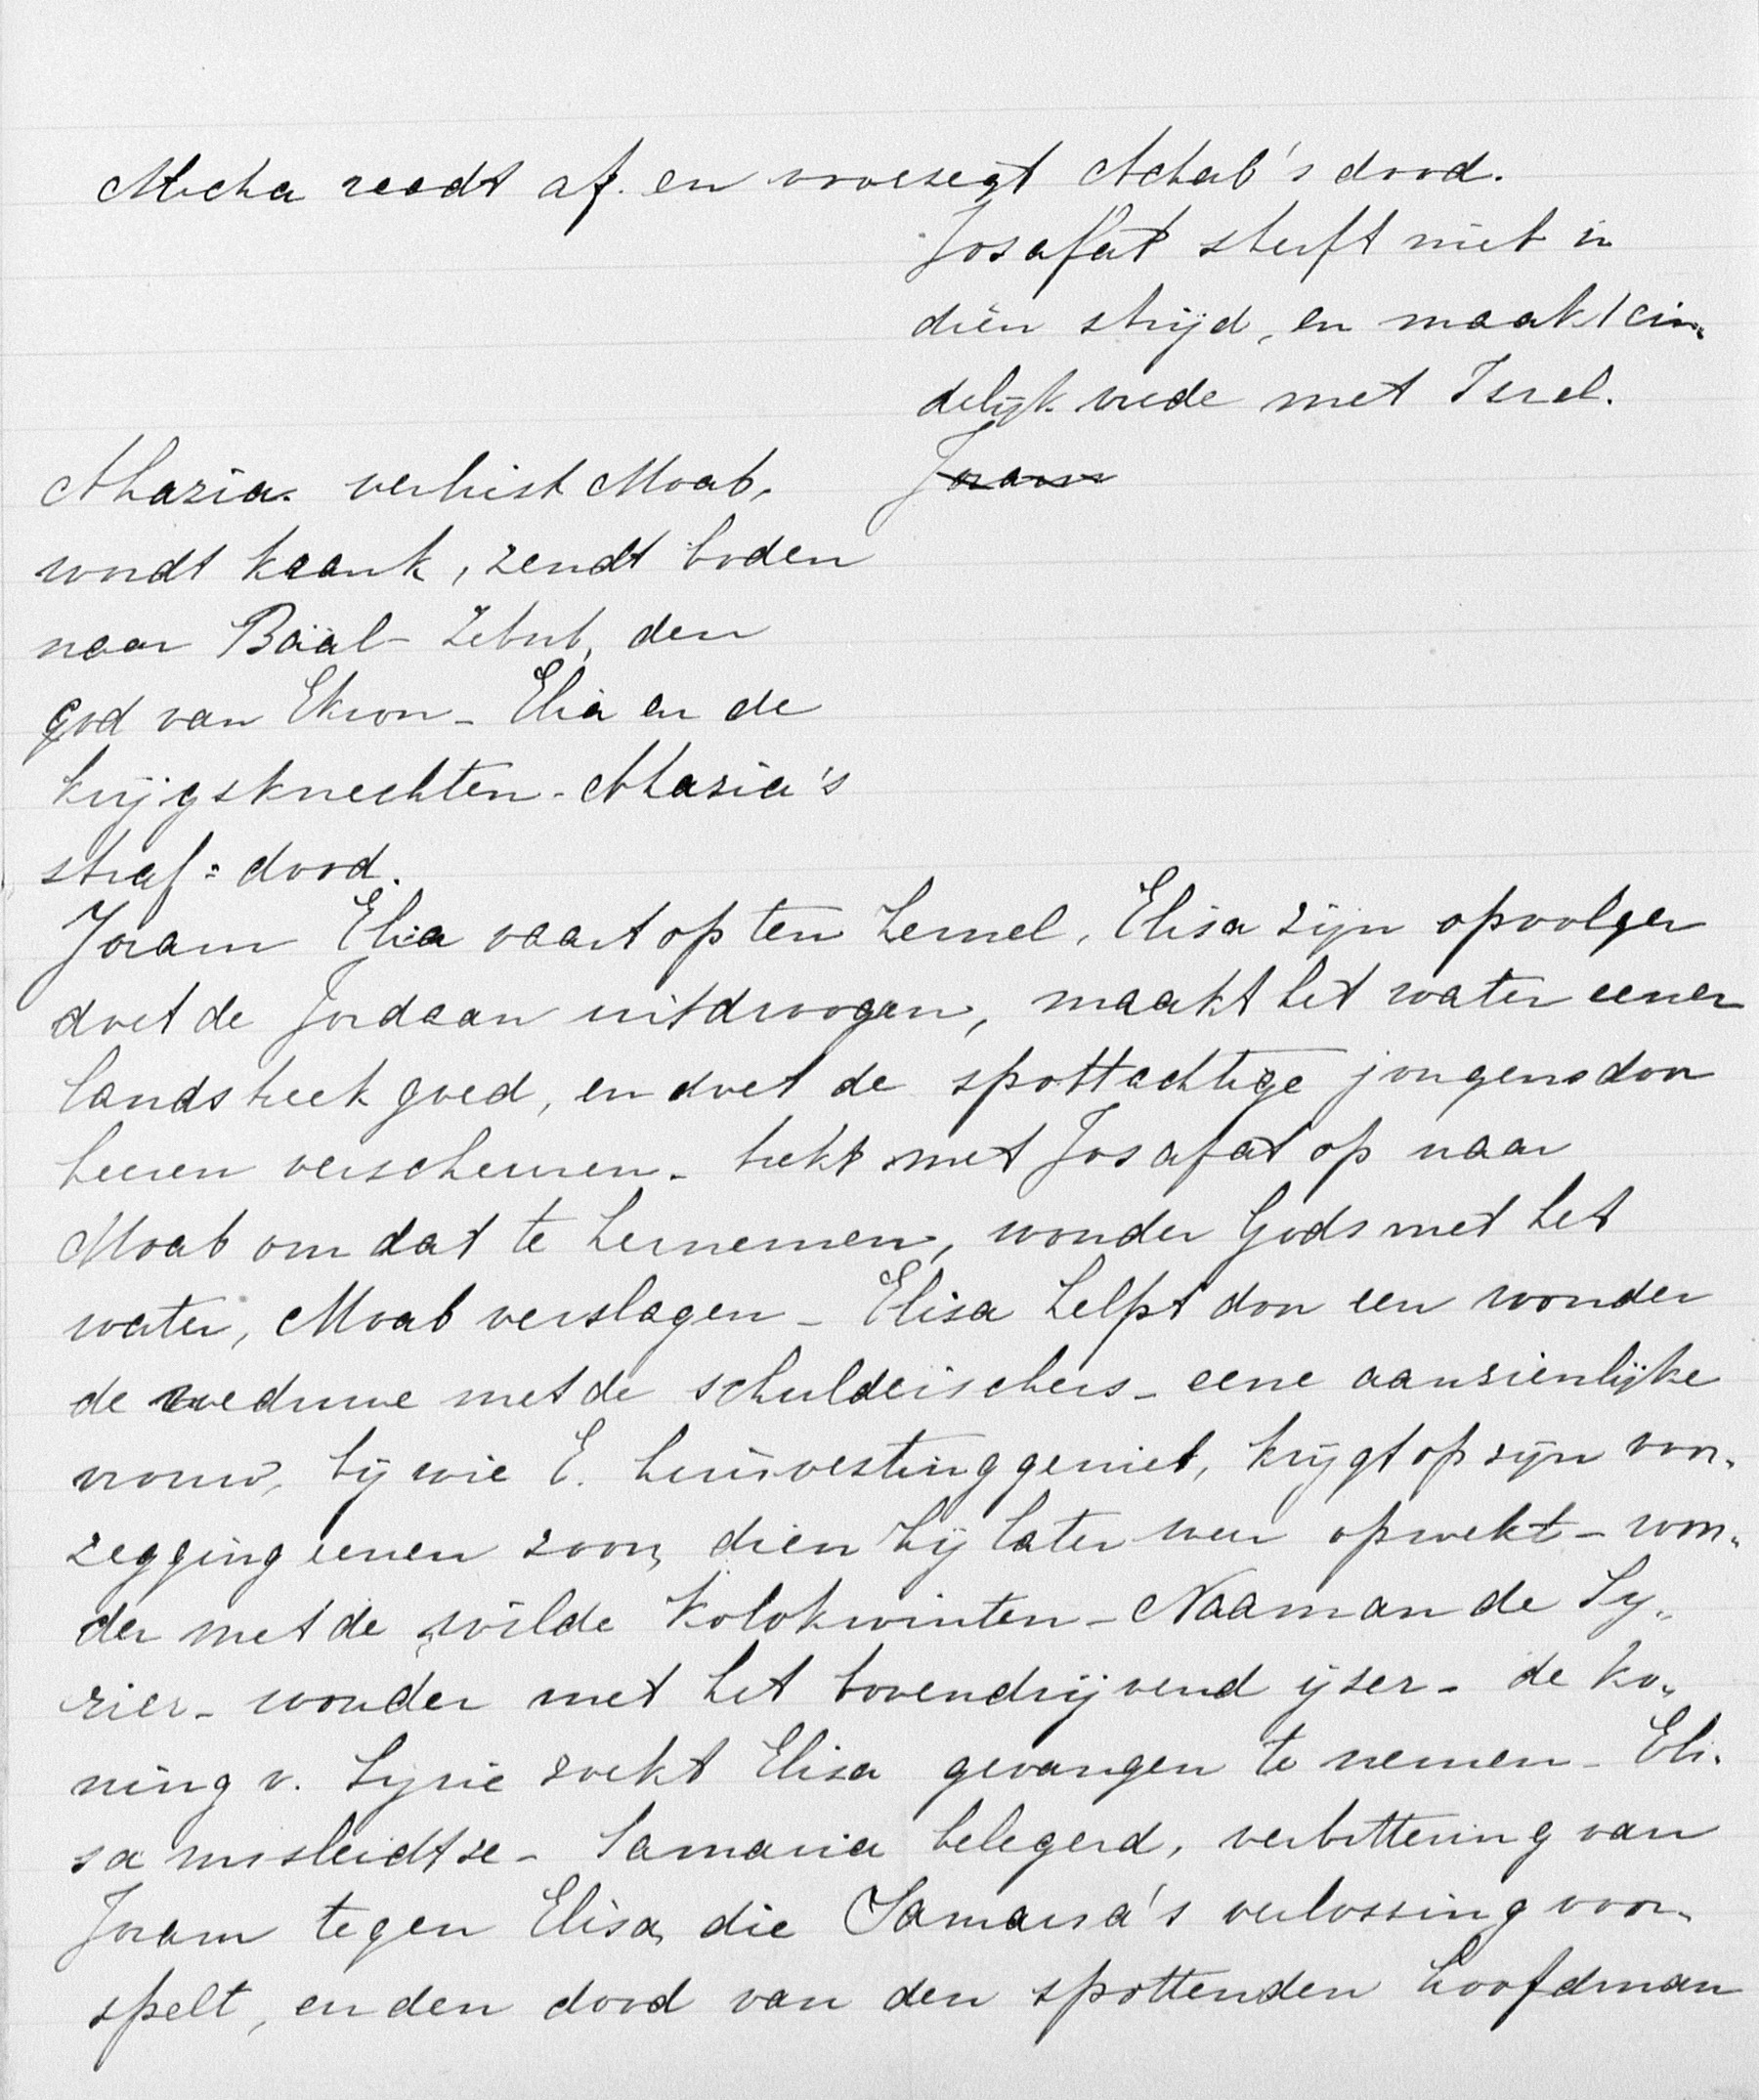 Micha raadt af en voorzegt Achab's dood.
Josafat sterft niet in
dien strijd, en maakt ein-
delijk vrede met Isrel.
Joram
Ahazia verliest Moab,
wordt krank, zendt boden
naar Baäl-Zebub, den
god van Ekron - Elia en de
krijgsknechten - Ahazia's
straf = dood.
Joram Elia vaart op ten hemel, Elisa zijn opvolger
doet de Jordaan uitdroogen, maakt het water eener
landstreek goed, en doet de spottachtige jongens door
beeren verscheuren - trekt met Josafat op naar
Moab om dat te hernemen, wonder Gods met het
water, Moab verslagen - Elisa helpt door een wonder
de weduwe met de schuldeischers - eene aanzienlijke
vrouw, bij wie E. huisvesting geniet, krijgt op zijn voor-
zegging eenen zoon, dien hij later weer opwekt - won-
der met de wilde kolokwinten - Naaman de Sy-
riër - wonder met het bovendrijvend ijzer - de ko-
ning v. Syrië zoekt Elisa gevangen te nemen - Eli-
sa misleidt ze - Samaria belegerd, verbittering van
Joram tegen Elisa, die Samaria's verlossing voor-
spelt, en den dood van den spottenden hoofdman